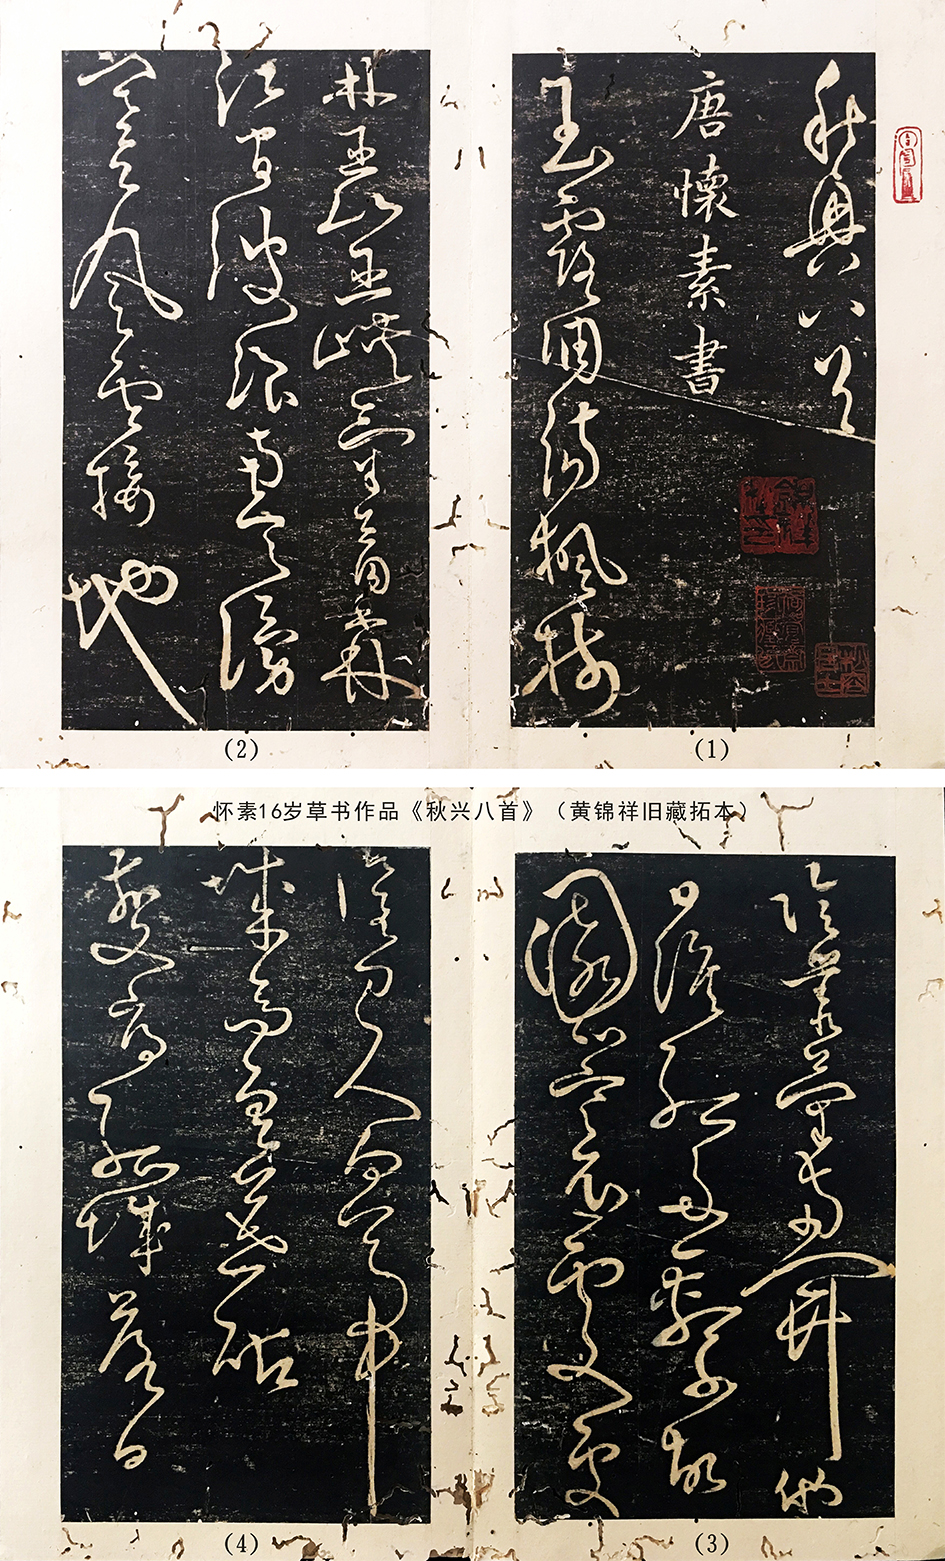 秋興八首
唐懷素書
玉露凋傷楓樹
(1)
林巫山巫峽氣蕭森
江間波浪兼天湧
塞上風雲接地
(2)
怀素16岁草书作品《秋兴八首》（黄锦祥旧藏拓本）
陰叢菊兩開他
日淚孤舟一繫故
園心寒衣處處
(3)
催刀尺白帝
城高急暮砧
夔府孤城落日
(4)